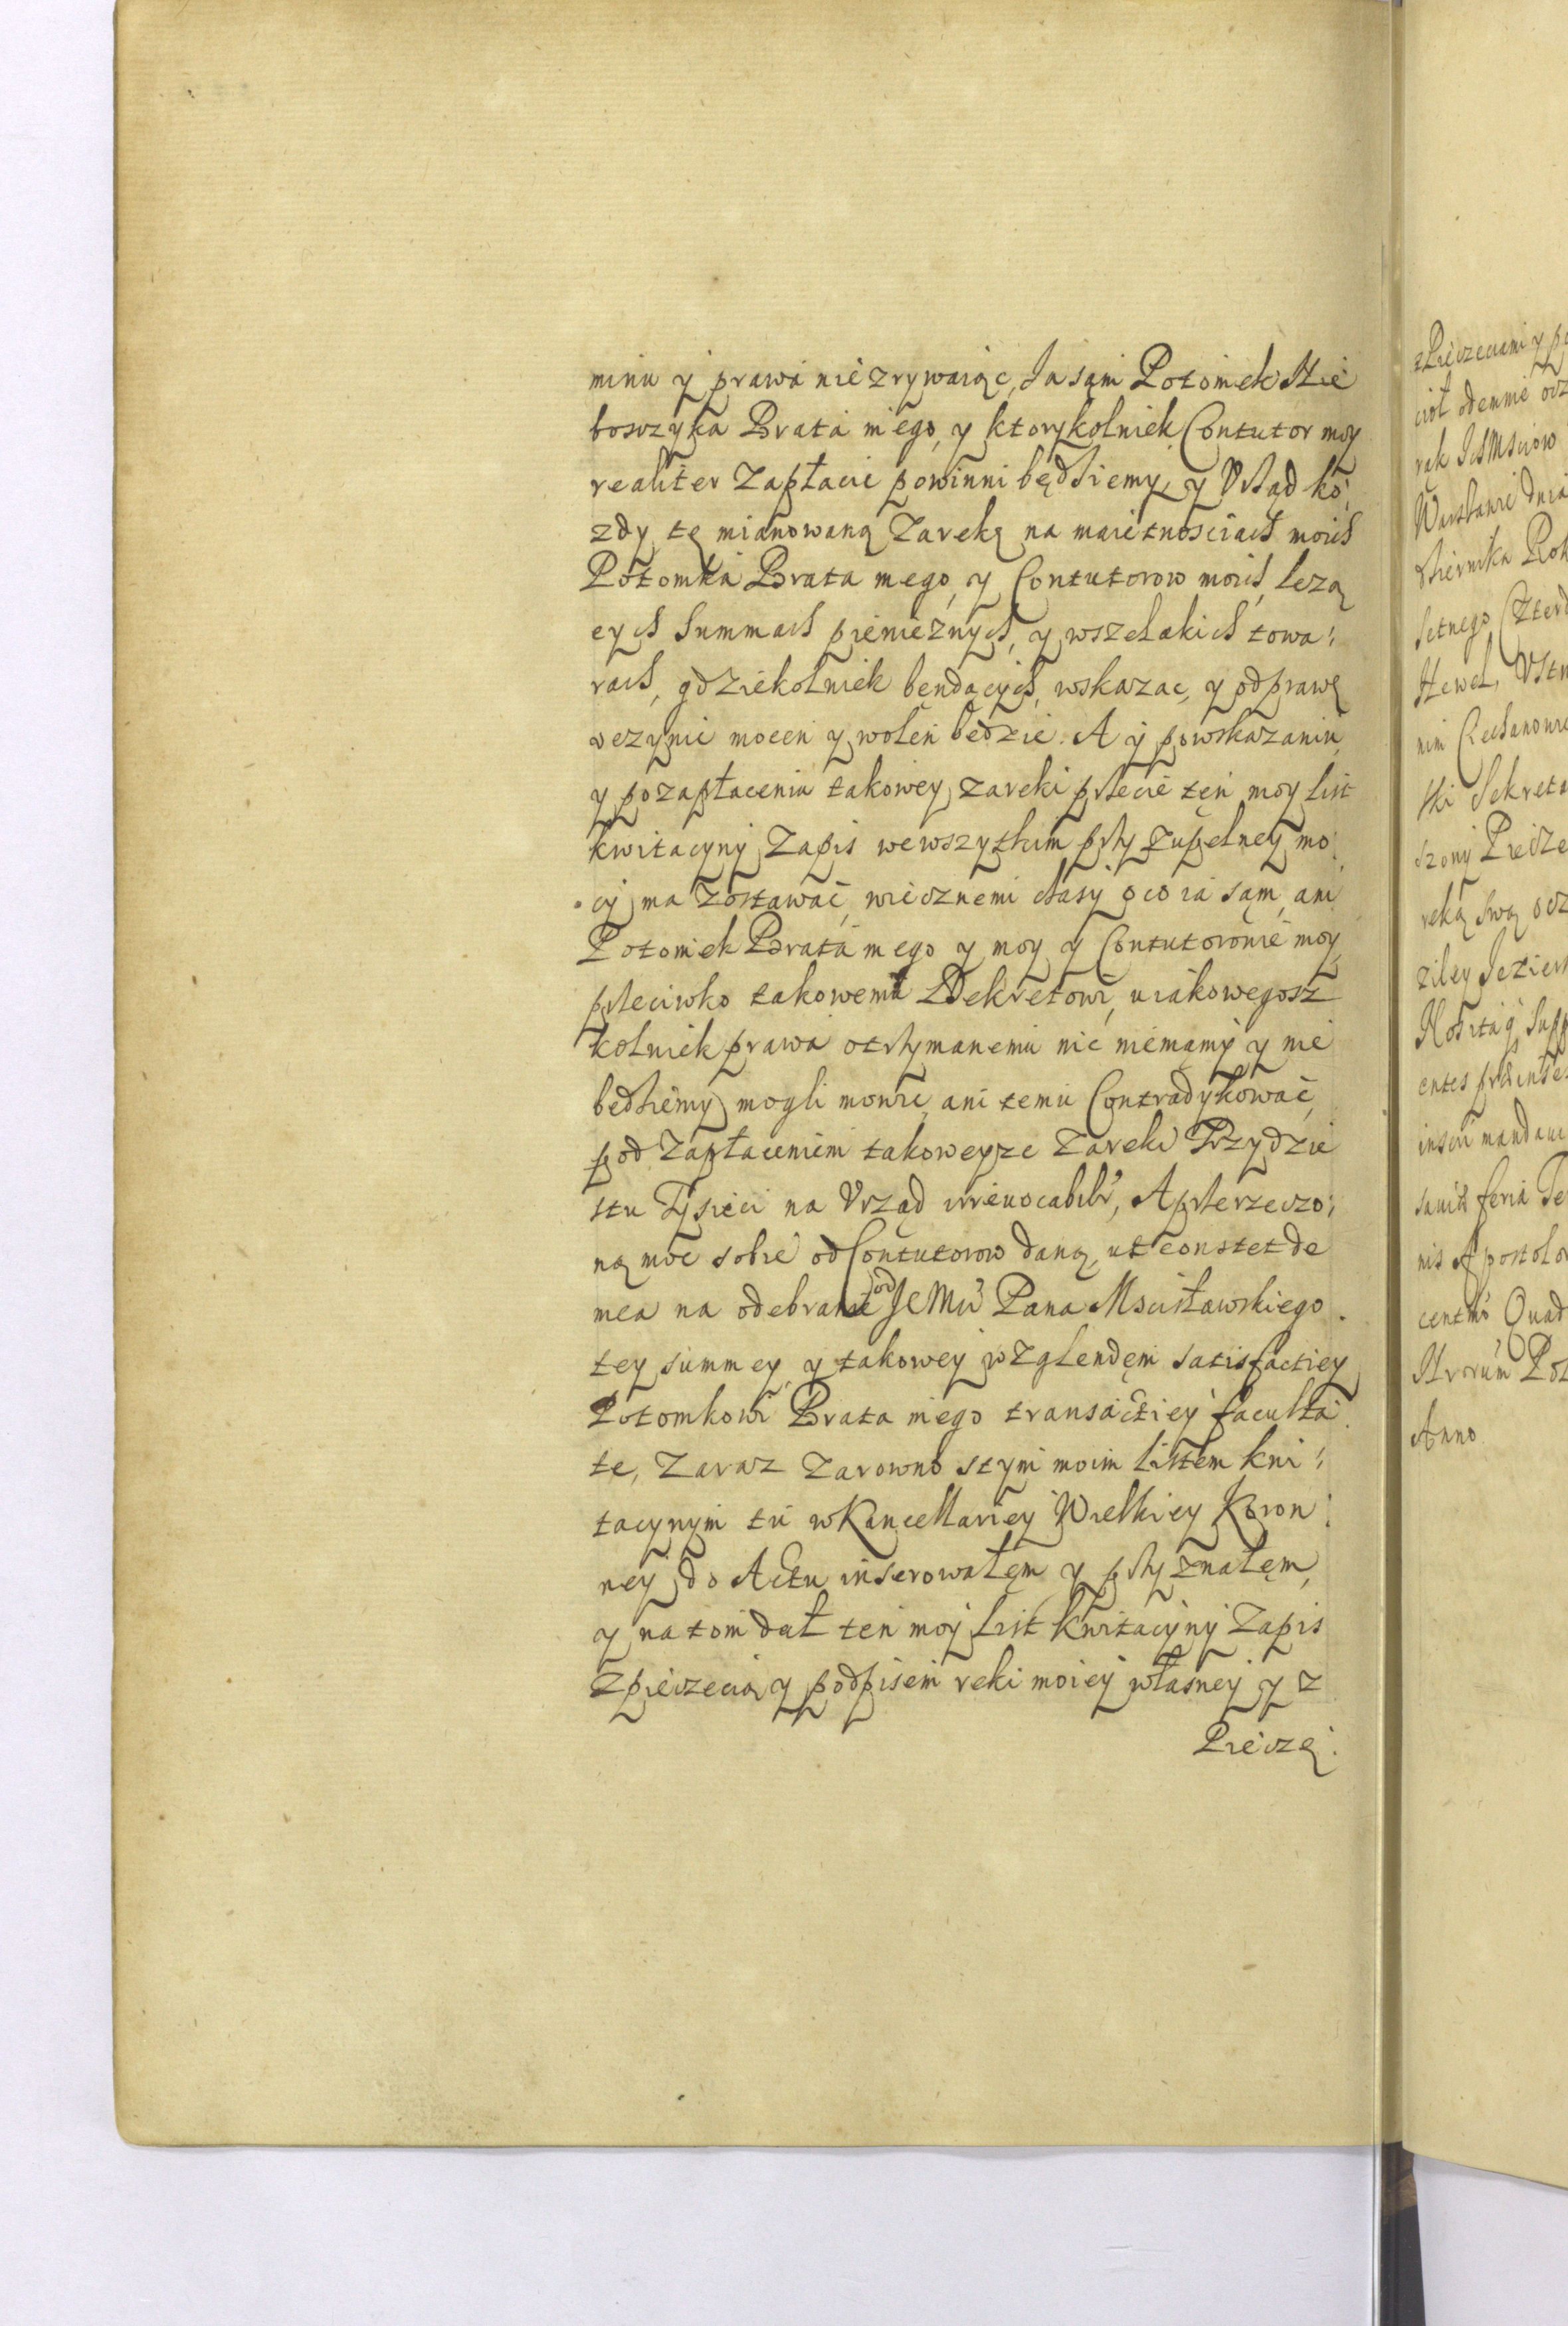 minu y prawa nie zrywaiąc, Ja sam Potomek Nie
boszczyka Brata mego, y ktorykolniek Contutor moy
realiter Zapłacic powinni będziemy, y Vrząd ko:
zdy tę mianowaną Zarekę na maietnosciach moich
Potomka Brata mego, y Contutorow moich, lezą
cych Summach pienieznych, y wszelakich towa:
rach, gdziekolniek bendących, wskazac, y odprawę
vczynic mocen y wolen bedzie. A y powskazaniu
y pozapłaceniu takowey zareki przecie ten moy list
kwitacyny Zapis wewszytkim przy zupelney mo:
cy ma zostawać, wiecznemi czasy o co ia sąm, ani
Potomek Brata mego y moy y Contutorowie moy
przeciwko takowemu Dekretowi, u iakowegosz
kolniek prawa otrzymanemu nic niemąmy y nie
bedziemy mogli mowic, ani temu Contradykować,
pod Zapłaceniem takoweyze Zareki Trzydzie
stu Tysieci na Vrząd irreuocabilr, A przerzeczo:
ną moc sobie od Contutorow daną, ut constet de
mea na odebranie od JeMci Pana Mscisławskiego
tey summey, y takowey wzglendęm satisfactiey
Potomkowi Brata mego transactiey faculta
te, Zaraz Zarowno stym moim Listem kwi:
tacynym tu wKancellariey Wielkiey Koron:
ney do Actu inserowałęm y przyznałęm,
y na tom dał ten moy List kwitacyny Zapis
Zpieczecią y podpisem reki moiey własney y z
Pieczę:
zPieczeciami y
ciol odemnie
rak IchMsciow
Warszawie dnia
Setnego
Hewel,
ski Sekreta
reką swą
nis Apostolor
Anno